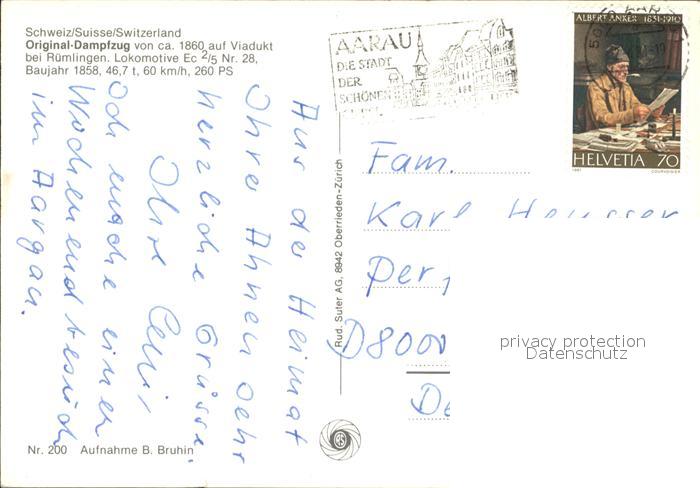 Schweiz/Suisse/Switzerland
Original-Dampfzug von ca. 1860 auf Viadukt
bei Rümlingen. Lokomotive Ec 2/5 Nr. 28,
Baujahr 1858, 46,7 t, 60 km/h, 260 PS
Aus der Heimat
Ihre Ahnen sehr
herzliche Grüsse.
Ihre
Ich mache einen
Wochenendbesuch
im Aargau.
Nr. 200 Aufnahme B. Bruhin
Rud. Suter AG, 8942 Oberrieden-Zürich
AARAU
DIE STADT
DER
SCHÖNEN
ALBERT ANKER 1831-1910
HELVETIA 70
1981 COURVOISIER
Fam.
Karl
Per
D8000
De
privacy protection
Datenschutz